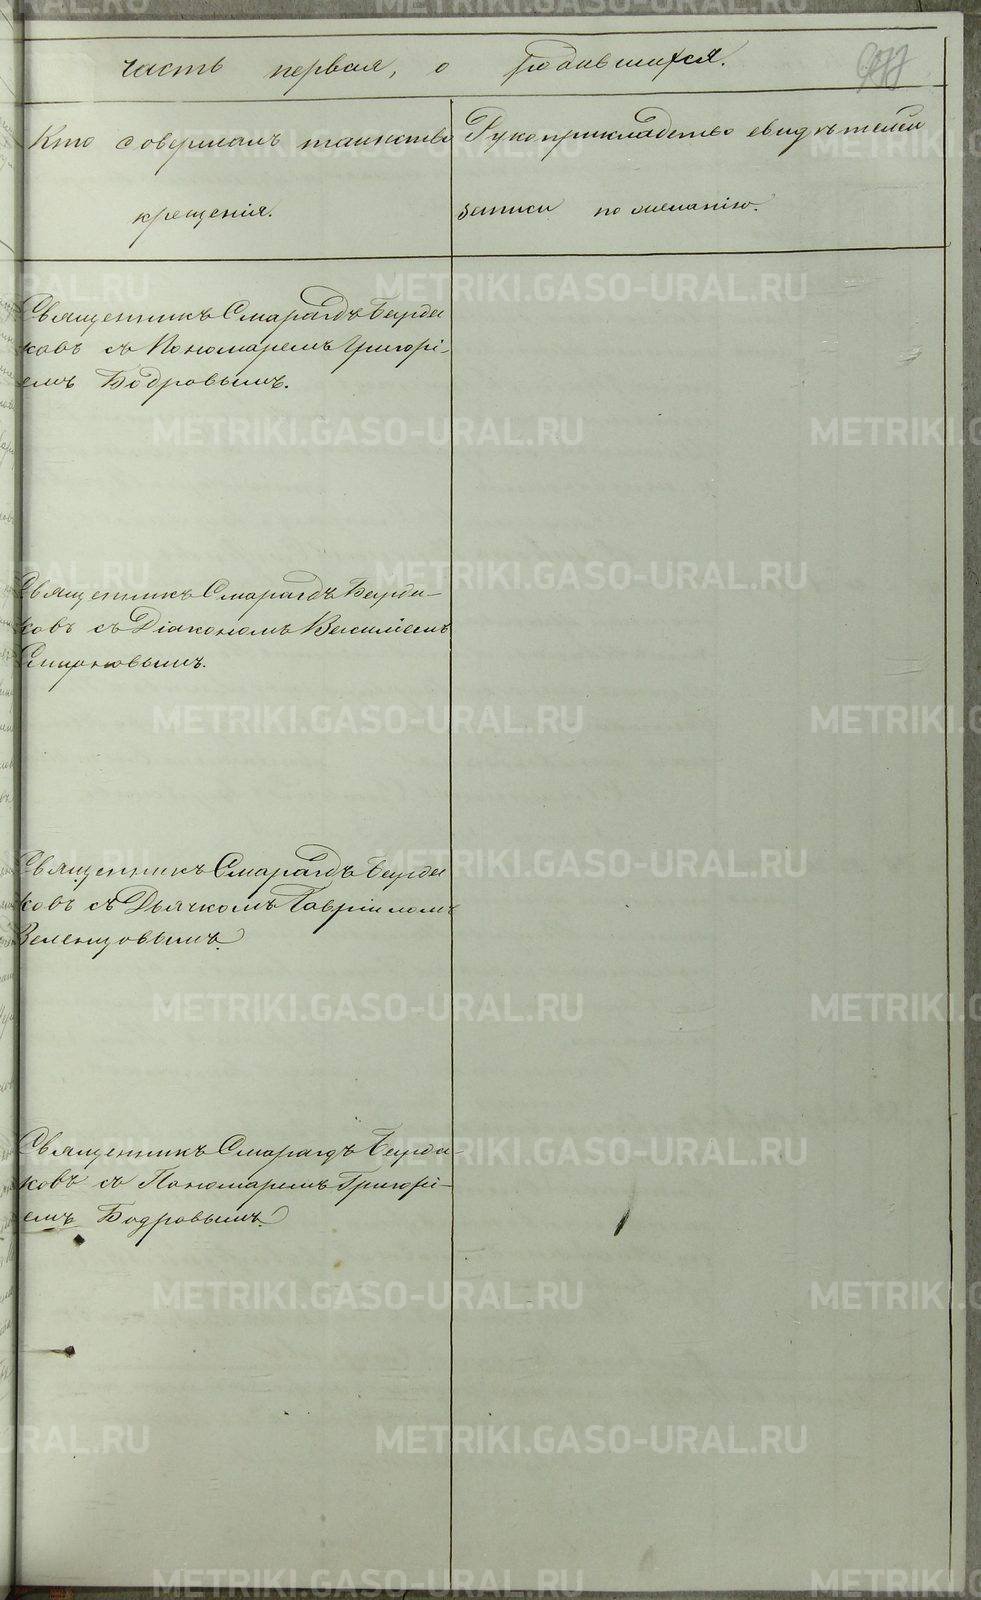 часть первая, о родившихся.
Кто совершалъ таинство
крещенія.
Рукоприкладство свидѣтелей
записи по желанію.
Священникъ Смарагдъ Бирю
ковъ съ Пономаремъ Григорі-
емъ Бодровымъ.
Священникъ Смарагдъ Бирю-
ковъ съ Діакономъ Василіемъ
Смирновымъ.
Священникъ Смарагдъ Бирю
ковъ съ Дьячкомъ Гавріиломъ
Зеленцовымъ.
Священникъ Смарагдъ Бирю-
ковъ съ Пономаремъ Григорі-
емъ Бодровымъ.
METRIKI.GASO-URAL.RU